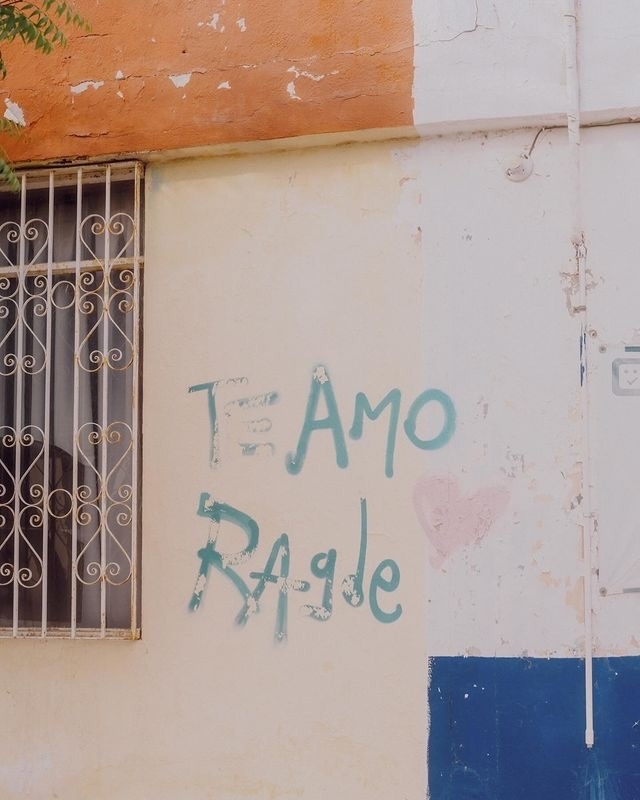 TE AMO
RAgde